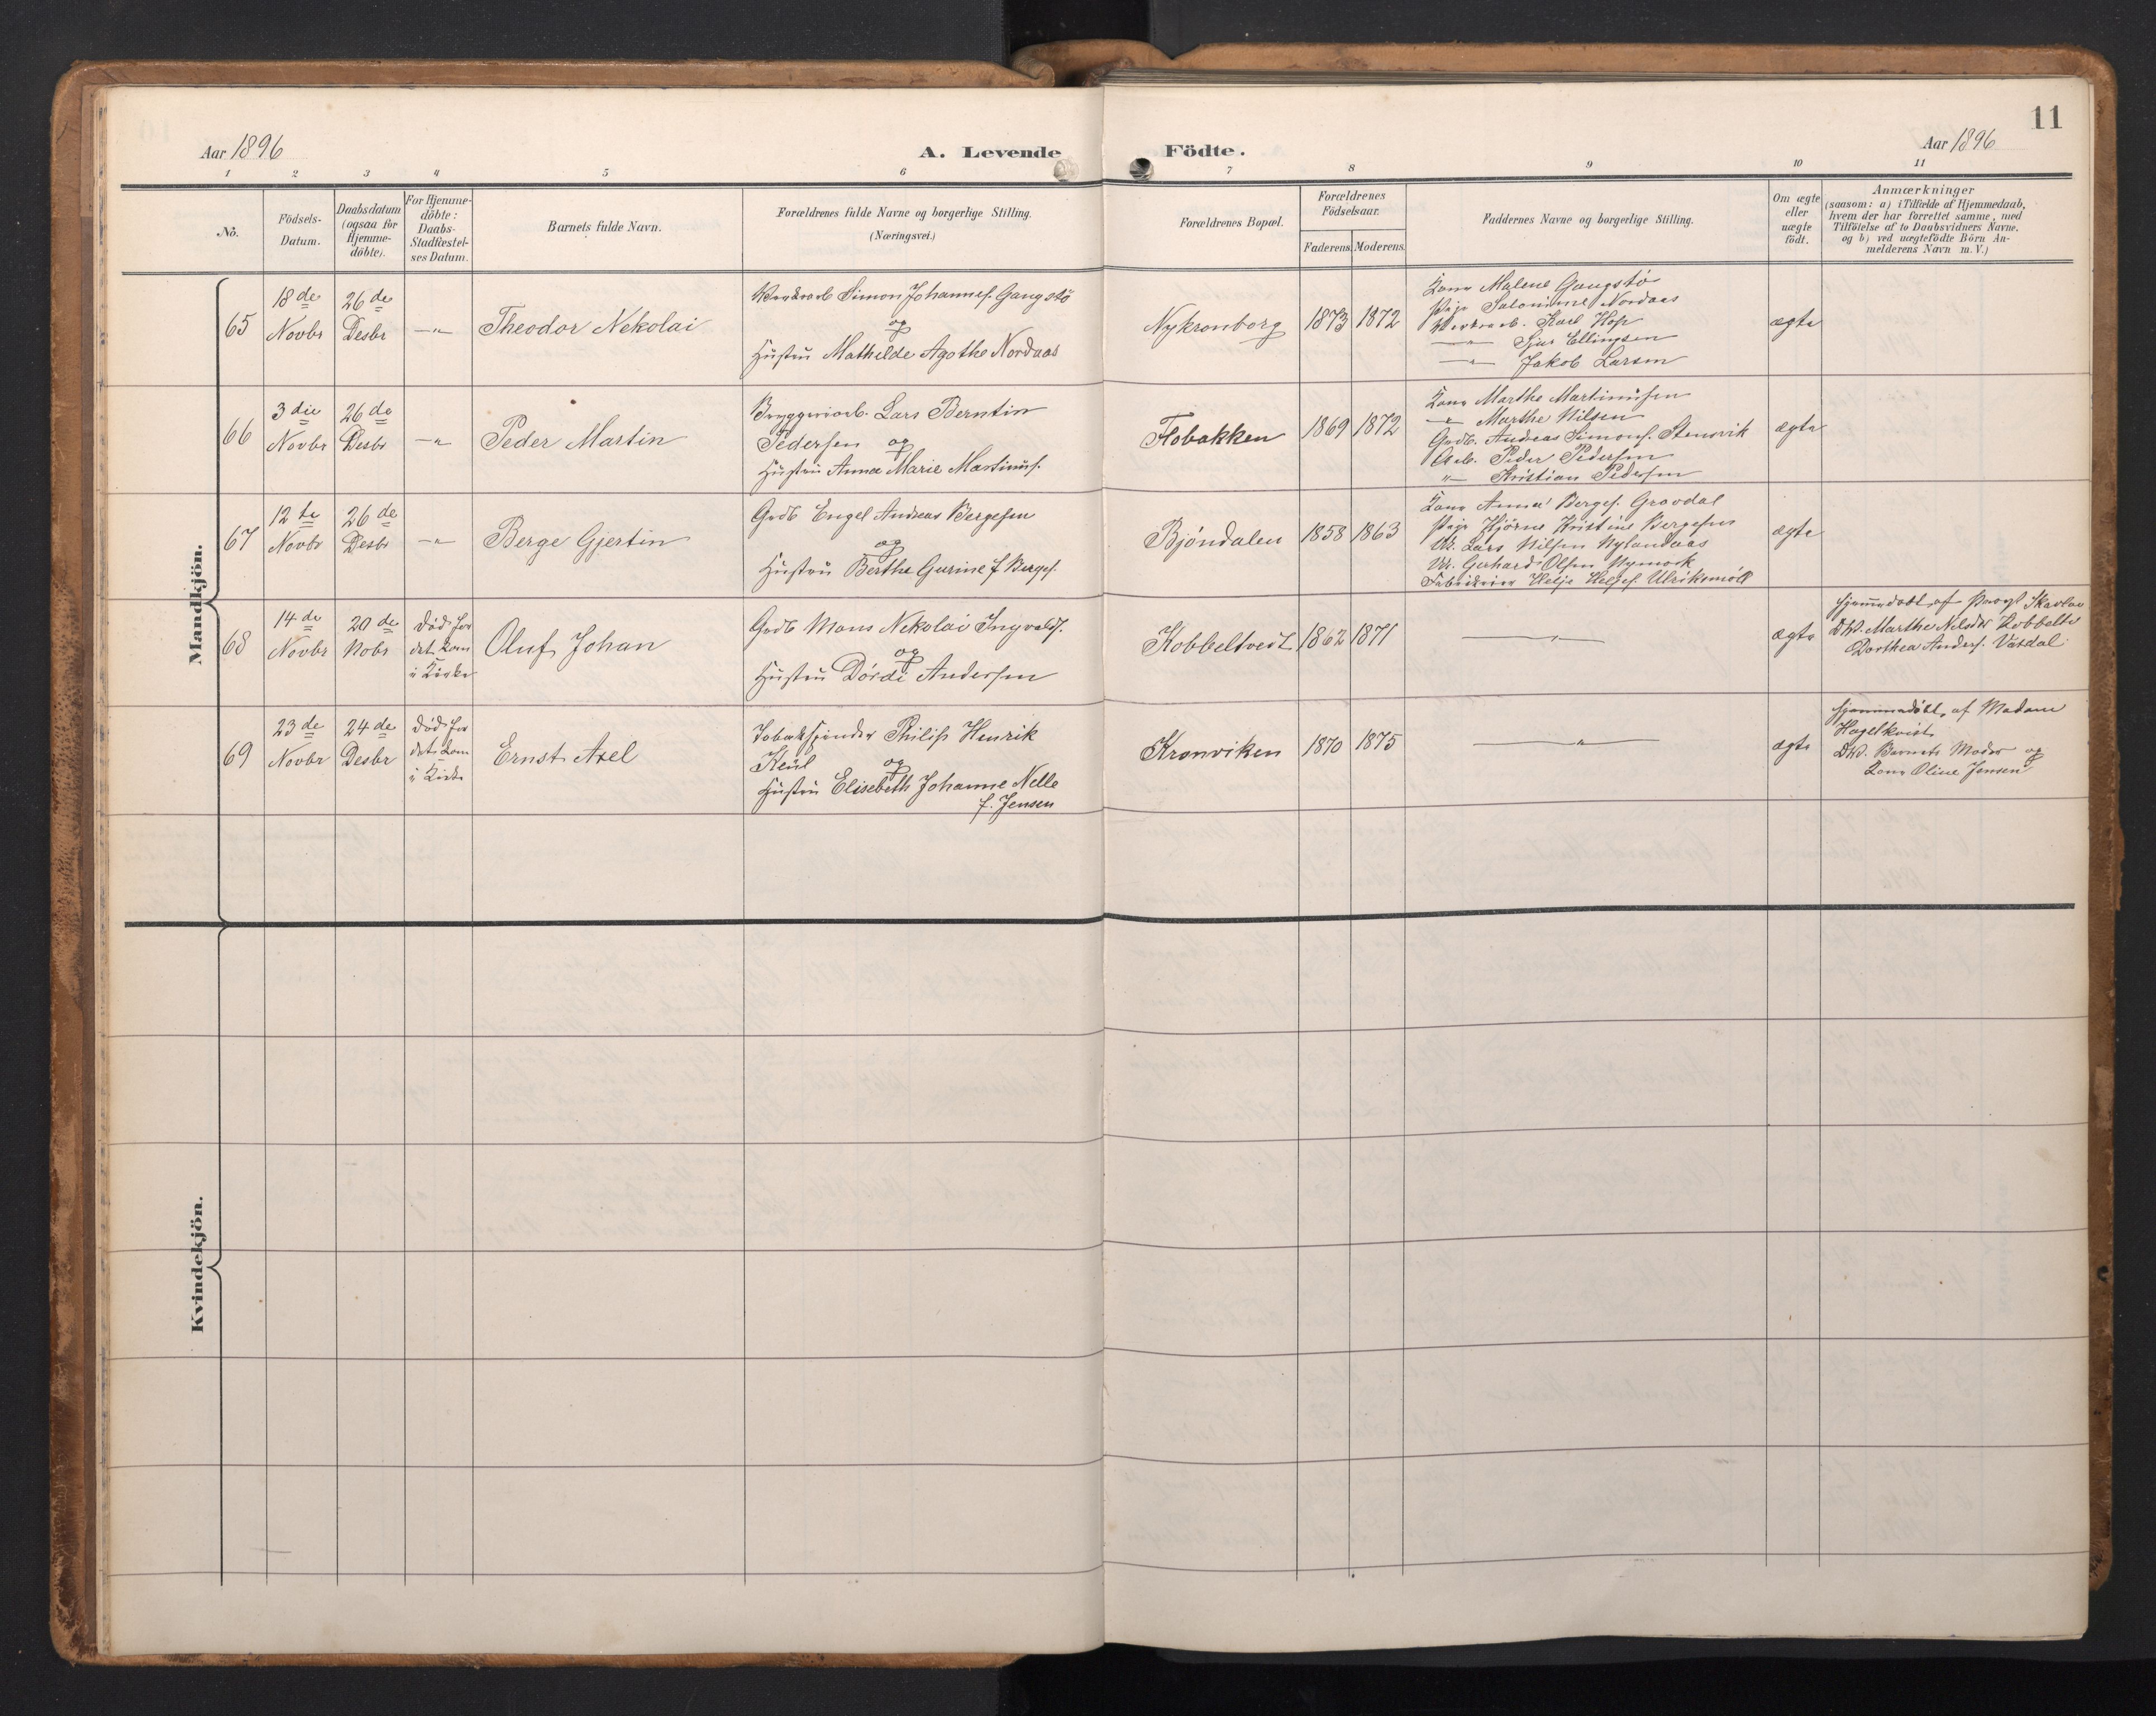 11
Aar 1896
A. Levende Födte.
Aar 1896
1 2 3 4 5 6 7 8 9 10 11
No.
Födsels-
Datum.
Daabsdatum
(ogsaa for
Hjemme-
döbte).
For Hjemme-
döbte:
Daabs-
Stadfæstel-
ses Datum.
Barnets fulde Navn.
Forældrenes fulde Navne og borgerlige Stilling.
(Næringsvei.)
Forældrenes Bopæl.
Forældrenes
Födselsaar.
Faderens. Moderens.
Faddernes Navne og borgerlige Stilling.
Om ægte
eller
uægte
födt.
Anmærkninger
(saasom: a) i Tilfælde af Hjemmedaab,
hvem der har forrettet samme, med
Tilföielse af to Daabsvidners Navne.
og b) ved uægtefödte Börn An-
melderens Navn m.V.)
Mandkjön.
65
18de
Novbr
26de
Desbr
—"
Theodor Nekolai
Simon Johannes. Gangstö
og
Hustru Mathilde Agathe Nordaas
Nykronborg
1873
1872
Kone Malene Gangstö
Pige Salomine Nordaas
Karl Hop
—"— Sjur Ellingsen
—"— Jakob Larsen
ægte
66
3die
Novbr
26de
Desbr
—"
Peder Martin
Bryggeriarb. Lars Berntin
Pedersen og
Hustru Anna Marie Martinus.
Flobakken
1869
1872
Kone Marthe Martinusen
—"— Marthe Nilsen
Grdb. Andreas Simons. Stensvik
Arb. Peder Pedersen
"— Kristian Pedersen
ægte
67
12te
Novbr
26de
Desbr
—"
Berge Gjertin
Grdb Engel Andreas Bergesen
og
Hustru Berthe Gurine f Berges.
Bjöndalen
1858
1863
Kone Anna Berges. Gravdal
Pige Hjörne Kristine Bergesen
Uk. Lars Nilsen Nylandaas
Uk. Gerhard Olsen Nymark
Helje Heljes. Ulriksmöll
ægte
68
14de
Novbr
20de
Nobr
död för
det kom
i Kirke
Oluf Johan
Grdb Mons Nekolai Ingvalds.
og
Hustru Dördi Andersen
Kobbeltvedt
1862
1871
—"—
ægte
Hjemmedöbt af Skavlan
Dbv. Marthe Nelsdr Kobbeltv
Dorthea Anders. Vatdal
69
23de
Novbr
24de
Desbr
död för
det kom
i Kirke
Ernst Axel
Tobakspinder Philip Henrik
Keül og
Hustru Elisebeth Johanne Nelle
f. Jensen
Kronviken
1870
1875
—"—
ægte
Hjemmedöbt af Madam
Hagelkvist
Dbv. Barnets Moder og
Kone Oline Jensen
Kvindekjön.